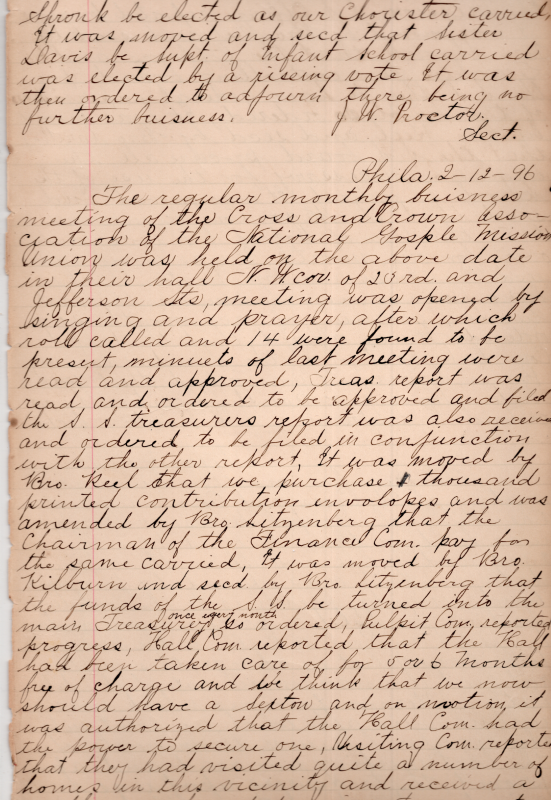 Spronk be elected as our Chorister carried,
It was moved and secd that Sister
Davis be Supt. of Infant School carried
was elected by a rising vote It was
then ordered to adjourn there being no
further buisness. J. W. Proctor.
Sect.
Phila. 2-12-96
The regular monthly buisness
meeting of the Cross and Crown asso-
ciation of the National Gosple Mission
Union was held on the above date
in their hall N. W cor. of 23rd. and
Jefferson Sts, meeting was opened by
singing and prayer, after which
roll called and 14 were found to be
present, minuets of last meeting were
read and approved, Treas. report was
read, and ordered to be approved and filed
the S. S. treasurers report was also received
and ordered to be filed in conjunction
with the other report, It was moved by
Bro. Keel that we purchase 1 thousand
printed contribution involopes and was
amended by Bro. Litzenberg that the
Chairman of the Finance Com. pay for
the same carried, It was moved by Bro.
Kilburn and secd by Bro. Litzenberg that
the funds of the S. S. be turned into the
main Treasurey once every month so ordered, Pulpit Com, reported
progress, Hall Com reported that the Hall
had been taken care of for 5 or 6 months
free of charge and we think that we now
should have a sexton and on motion it
was authorized that the Hall Com. had
the power to secure one, Visiting Com. reported
that they had visited quite a number of
homes in this vicinity and received a